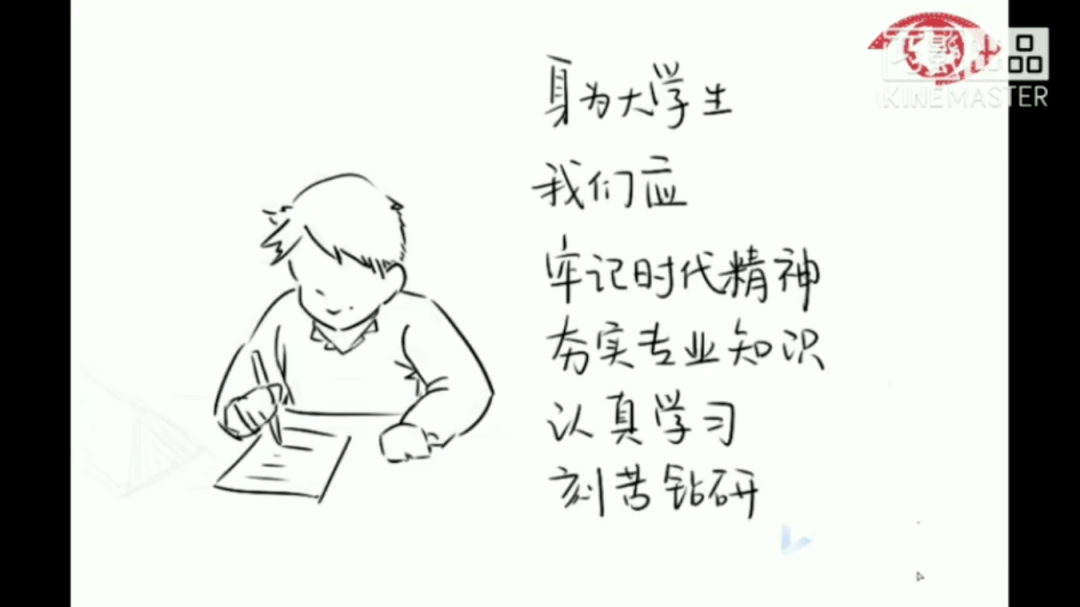 身为大学生
我们应
牢记时代精神
夯实专业知识
认真学习
刻苦钻研
品
KINEMASTER